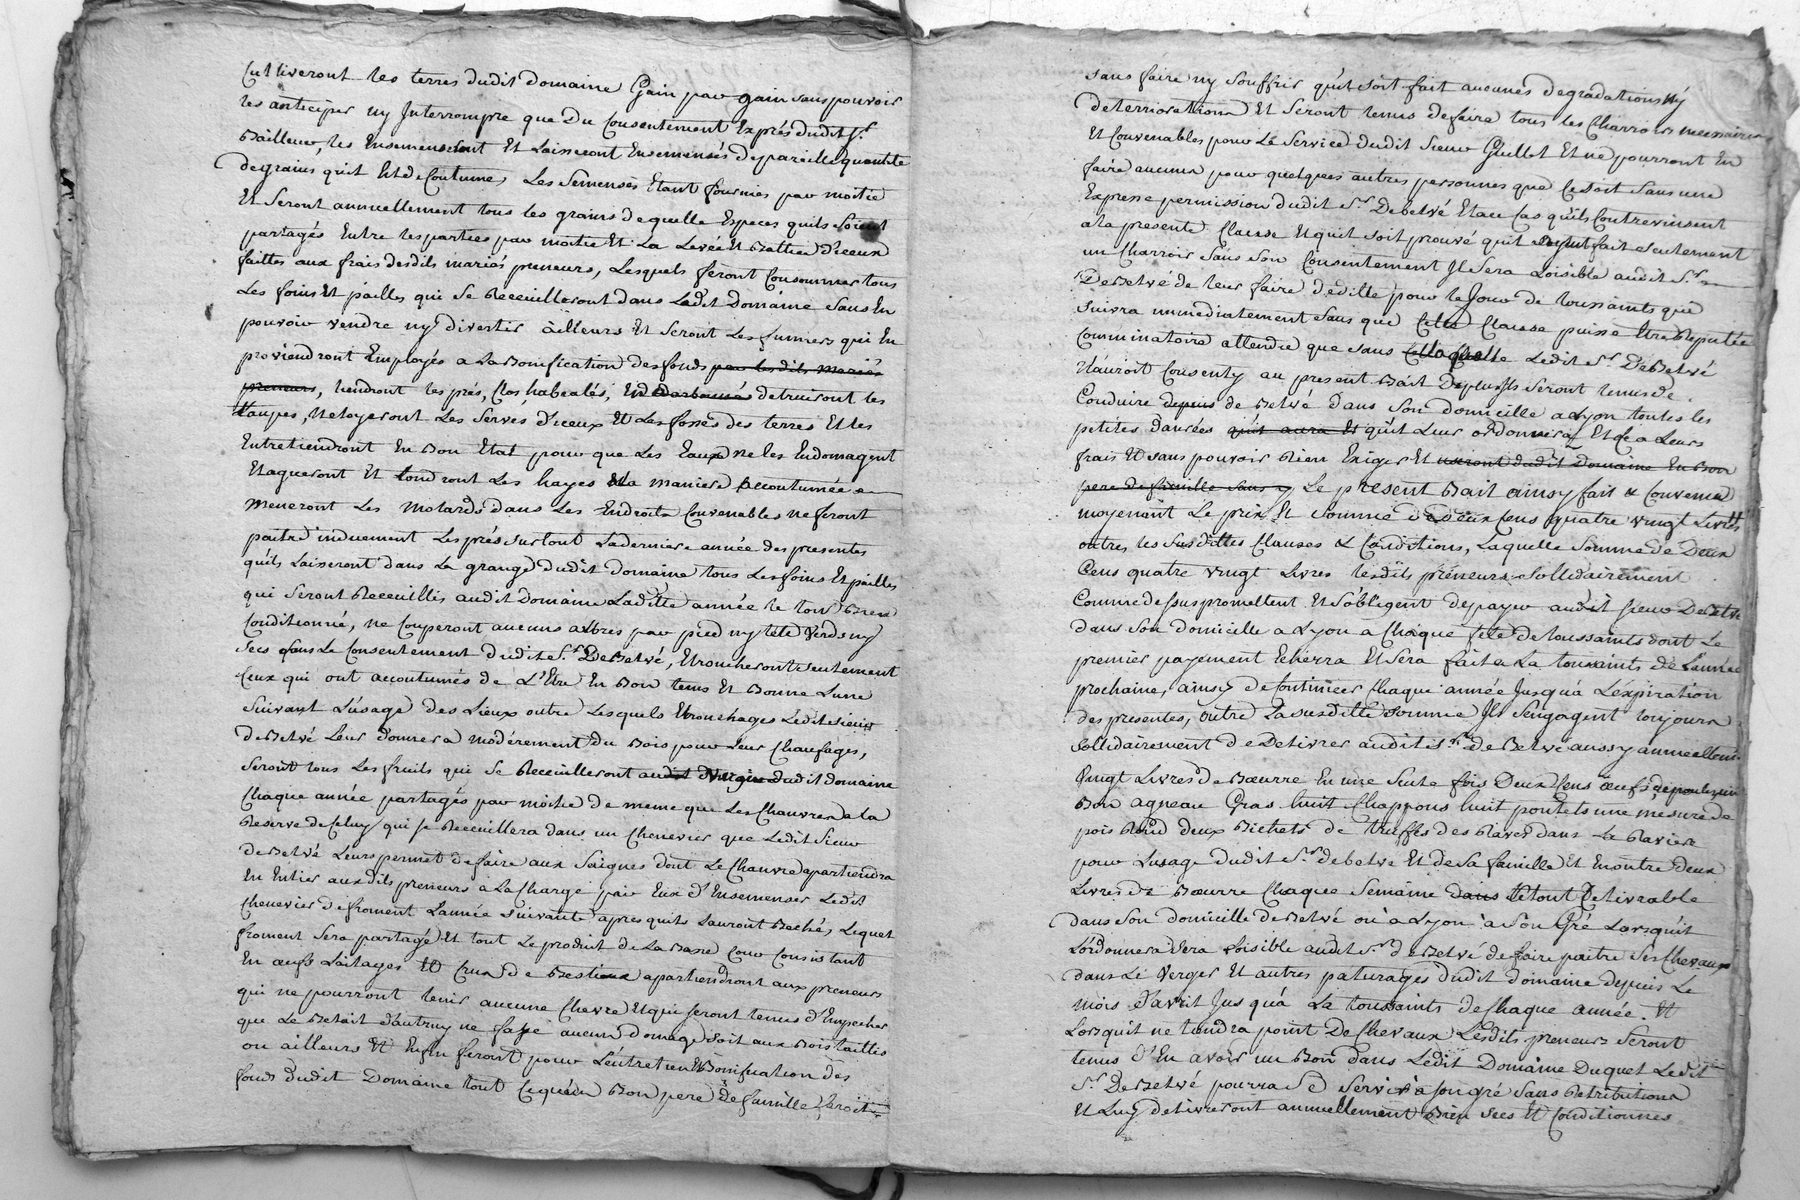 Cultiveront les terres dudit domaine Gain par gain sans pouvoir
les anticiper ny Interrompre que Du Consentement Exprés dudit Sr.
Bailleur, les Ensemenseront Et Laisseront Ensemensés de pareille quantité
de grains quil Est de Coutume, Les Semensés Etant fournies par moitié
Et Seront annuellement tous les grains de quelle Especes quils Soient
partagés Entre les parties par moitié Et La Levée Et Battue D'iceux
faittes aux frais desdits mariés preneurs, Lesquels feront Consommer tous
Les foins Et pailles qui Se Receuilleront dans Ledit Domaine Sans En
pouvoir vendre ny divertir àilleurs Et Seront Les fumiers qui En
proviendront Employés a La Bonification des fonds par lesdits Mariés
preneurs, tiendront les prés, Clos habealés, En detruiront les
taupes, Netoyeront Les Serves D'iceux Et Les fossés des terres Et les
Entretiendront En Bon Etat pour que Les Eaux ne les Endomagent
Etaqueront Et tondront Les hayes Ala maniere accoutumée
Meneront Les Motards dans Les Endroits Convenables ne feront
paitre induement Les prés surtout La derniere année des presentes
qu'ils Laisseront dans La grange dudit domaine tous Les foins Et pailles
qui Seront Receuillis audit Domaine Laditte année le tout Bien
Conditionné, ne Couperont aucuns arbres par pied ny tété Verds ny
Secs sans Le Consentement Dudit Sr. De Belvé, Etroncheront Seulement
Ceux qui ont accoutumés de L'Etre En Bon tems Et Bonne Lune
Suivant L'usage des Lieux outre Lesquels Etronchages Ledit sieur
De Belvé Leur donnera modérement Du Bois pour Leur Chaufages,
Seront tous Les fruits qui Se Receuilleront audit Verger dudit domaine
Chaque année partagés par moitié de meme que Les Chauvres a la
Reserve de Celuy qui se Receuillera dans un Chenevier que Ledit Sieur
De Belvé Leurs permet de faire aux Saignes dont Le Chauvre apartiendra
En Entier auxdits preneurs à La Charge par Eux d'Ensemenser Ledit
Chenevier de froment L'année Suivante apres quils Lauront Beché, Lequel
froment Sera partagé Et tout Le produit de La Basse Cour Consistant
En œufs Laitages Et Crus de Bestiaux apartiendront aux preneurs
qui ne pourront tenir aucune Chevre Et qui seront tenus d'Empecher
que Le Betail d'autruy ne fasse aucun domage soit aux Bois taillis
ou ailleurs Et Enfin feront pour L'entretien Et Bonification des
fonds dudit Domaine tout Ce quun Bon pere De famille feroit
sans faire ny souffrir qu'il soit fait aucunes degradations Ny
deterriorations Et Seront tenus de faire tous les Charrois necessaires
Et Convenables pour Le Service dudit Sieur Guillet Et ne pourront En
faire aucuns pour quelques autres personnes que Ce Soit Sans une
Expresse permission dudit Sr. De Belvé Et au Cas qu'ils Contrevinsent
a la presente Clausse Et quil soit prouvé quil ayent fait Seulement
un Charroi Sans Son Consentement Il Sera Loisible audit Sr.
De Belvé de leur faire deditte pour le Jour de toussaints qui
suivra immediatement Sans que Cette Clausse puisse Etre Reputée
Comminatoire attendu que sans Laquelle Ledit Sr. De Belvé
N'auroit Consenty au present Bail De plus ils Seront tenus de
Conduire depuis de Belvé dans Son domicille a Lyon toutes les
petites danrées qu'il aura Et qu'il Leur ordonnera Et Ce a Leurs
frais Et sans pouvoir Rien Exiger Et useront dudit Domaine En Bon
pere de famille Sans y Le present Bail ainsy fait & Convenu
moyenant Le prix Et Somme de deux Cens quatre vingt Livres
outres les Susdittes Clauses & Conditions, Laquelle Somme de Deux
Cens quatre vingt Livres lesdits préneurs Sollidairement
Comme dessus promettent Et S'obligent de payer audit sieur De Belvé
dans Son domicille a Lyon a Chaque fete de toussaints dont Le
premier payement Echerra Et Sera fait a La toussaints de L'année
prochaine, ainsy de Continuer Chaque année Jusqu'a L'expiration
des presentes, outre La susditte Somme Ils S'engagent toujours
Sollidairement de Delivrer audit Sr. de Belvé aussy annuellement
Vingt Livres de Bœurre En une Seule fois Deux Cens œufs de poules, un
Bon agneau Gras huit Chappons huit poulets une mesure de
pois Rond deux Bichets de truffes des Raves dans La Raviere
pour L'usage dudit Sr. de belve Et de Sa famille Et En outre deux
Livres de Bœurre Chaque Semaine dans Le tout Delivrable
dans Son domicille de Belvé ou a Lyon a Son Gré Lorsqu'il
L'ordonnera Sera Loisible audit Sr. de Belvé de faire paitre Ses Chevaux
dans Le Verger Et autres paturages dudit domaine depuis Le
mois d'avril Jusqu'a La toussaints de Chaque année. Et
Lorsquil ne tiendra point De Chevaux Lesdits preneurs Seront
tenus d'En avoir un Bon dans Ledit Domaine Duquel Ledit
Sr. De Belvé pourra Se Servir a son gré Sans Retribution
Et Luy delivreront annuellement Bien Secs Et Conditionnés